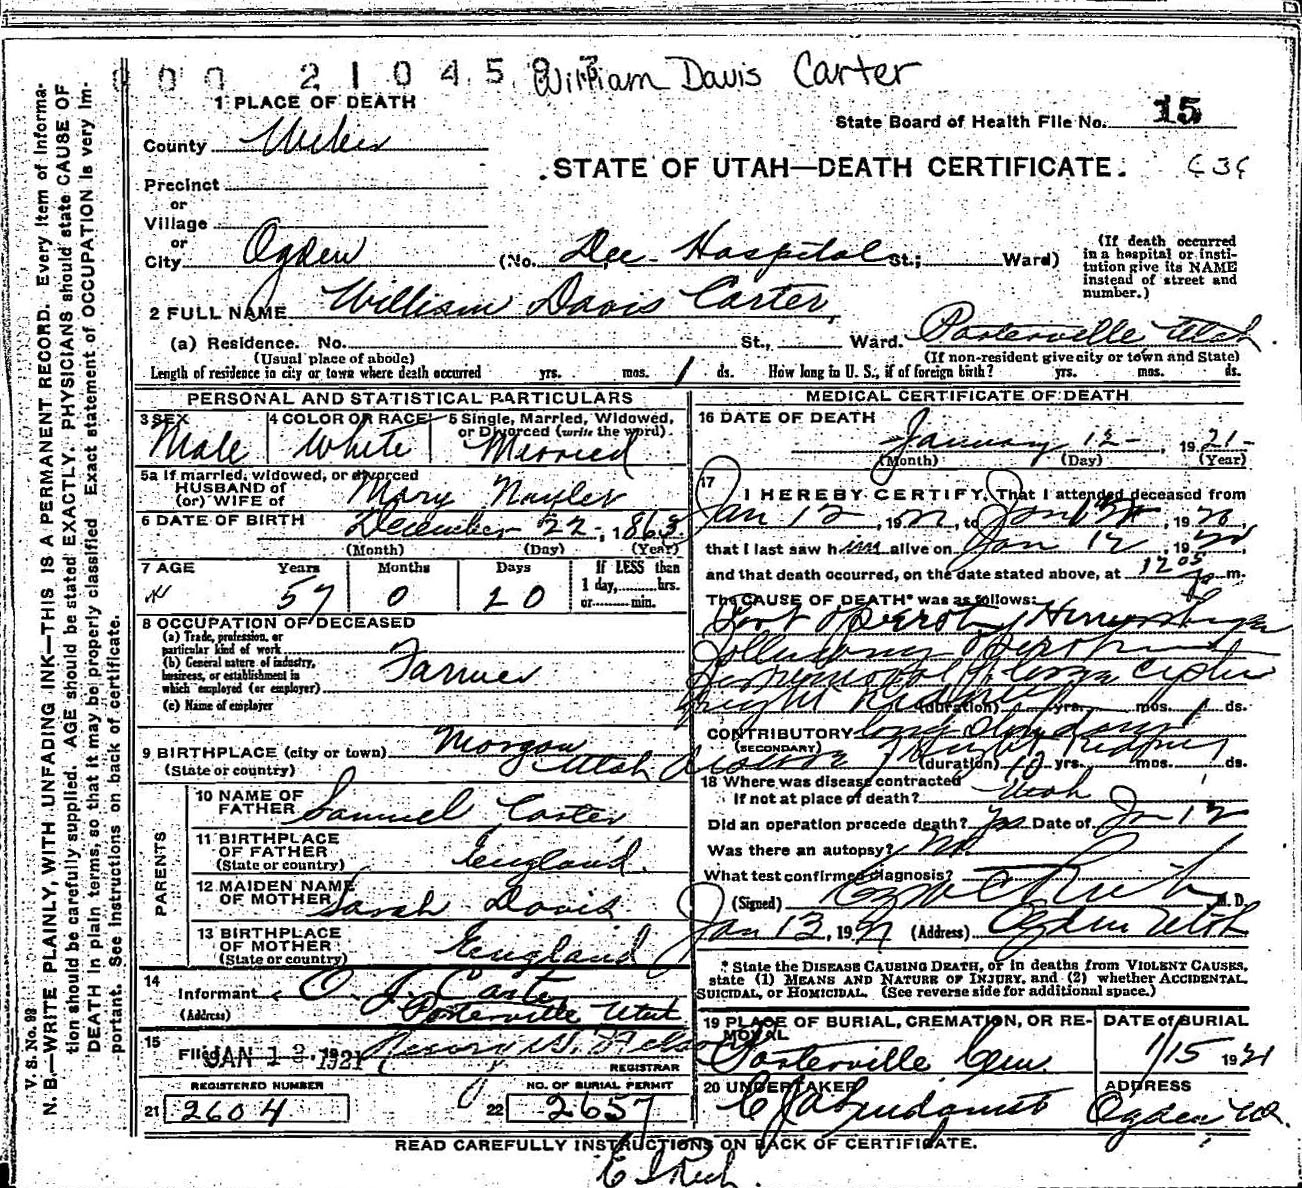 2 1 0 4 5 William Davis Carter
1 PLACE OF DEATH
State Board of Health File No. 15
County Weber
STATE OF UTAH—DEATH CERTIFICATE.
Precinct
or
Village
or
City Ogden (No. Dee Hospital St.; Ward)
(If death occurred in a hospital or institution give its NAME instead of street and number.)
2 FULL NAME William Davis Carter
(a) Residence. No. St., Ward. Porterville Utah
(Usual place of abode) (If non-resident give city or town and State)
Length of residence in city or town where death occurred yrs. mos. 1 ds. How long in U. S., if of foreign birth? yrs. mos. ds.
PERSONAL AND STATISTICAL PARTICULARS
3 SEX Male
4 COLOR OR RACE White
5 Single, Married, Widowed, or Divorced (write the word) Married
5a If married, widowed, or divorced
HUSBAND of
(or) WIFE of Mary Nayler
6 DATE OF BIRTH December 22, 1863
(Month) (Day) (Year)
7 AGE Years Months Days If LESS than
57 0 20 1 day, hrs.
or min.
8 OCCUPATION OF DECEASED
(a) Trade, profession, or
particular kind of work
(b) General nature of industry,
business, or establishment in
which employed (or employer) Farmer
(c) Name of employer
9 BIRTHPLACE (city or town) Morgan
(State or country) Utah
PARENTS
10 NAME OF
FATHER Samuel Carter
11 BIRTHPLACE
OF FATHER
(State or country) England
12 MAIDEN NAME
OF MOTHER Sarah Davis
13 BIRTHPLACE
OF MOTHER
(State or country) England
14
Informant O. J. Carter
(Address) Porterville Utah
15
Filed JAN 13, 1921
REGISTRAR
REGISTERED NUMBER NO. OF BURIAL PERMIT
21 2604 22 2657
MEDICAL CERTIFICATE OF DEATH
16 DATE OF DEATH
January 12 - 1921 -
(Month) (Day) (Year)
17
I HEREBY CERTIFY, That I attended deceased from
Jan 12, 19 to Jan 19
that I last saw him alive on Jan 12, 19
and that death occurred, on the date stated above, at 12 05 p m.
The CAUSE OF DEATH* was as follows:
Post Operative Hemorrhage
following operation
(duration) yrs. mos. 1 ds.
CONTRIBUTORY
(SECONDARY)
Right Kidney
(duration) 10 yrs. mos. ds.
18 Where was disease contracted
If not at place of death? Utah
Did an operation precede death? Yes Date of Jan 12
Was there an autopsy? No
What test confirmed diagnosis?
(Signed) Rich M. D.
Jan 13, 19 (Address) Ogden Utah
* State the DISEASE CAUSING DEATH, or in deaths from VIOLENT CAUSES,
state (1) MEANS AND NATURE OF INJURY, and (2) whether ACCIDENTAL,
SUICIDAL, or HOMICIDAL. (See reverse side for additional space.)
19 PLACE OF BURIAL, CREMATION, OR REMOVAL
Porterville Cem.
DATE of BURIAL
1/15 1921
20 UNDERTAKER
ADDRESS
Ogden
READ CAREFULLY INSTRUCTIONS ON BACK OF CERTIFICATE.
V. S. No. 98
N. B.—WRITE PLAINLY, WITH UNFADING INK—THIS IS A PERMANENT RECORD. Every item of informa-
tion should be carefully supplied. AGE should be stated EXACTLY. PHYSICIANS should state CAUSE OF
DEATH in plain terms, so that it may be properly classified. Exact statement of OCCUPATION is very im-
portant. See instructions on back of certificate.